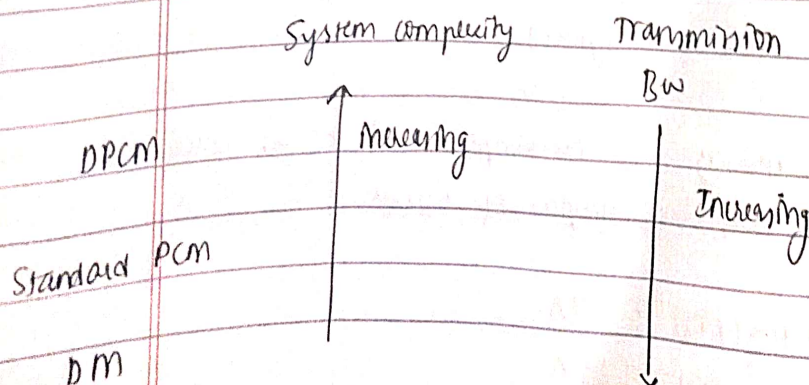 System complexity
Transmission
BW
DPCM
increasing
Increasing
Standard PCM
DM